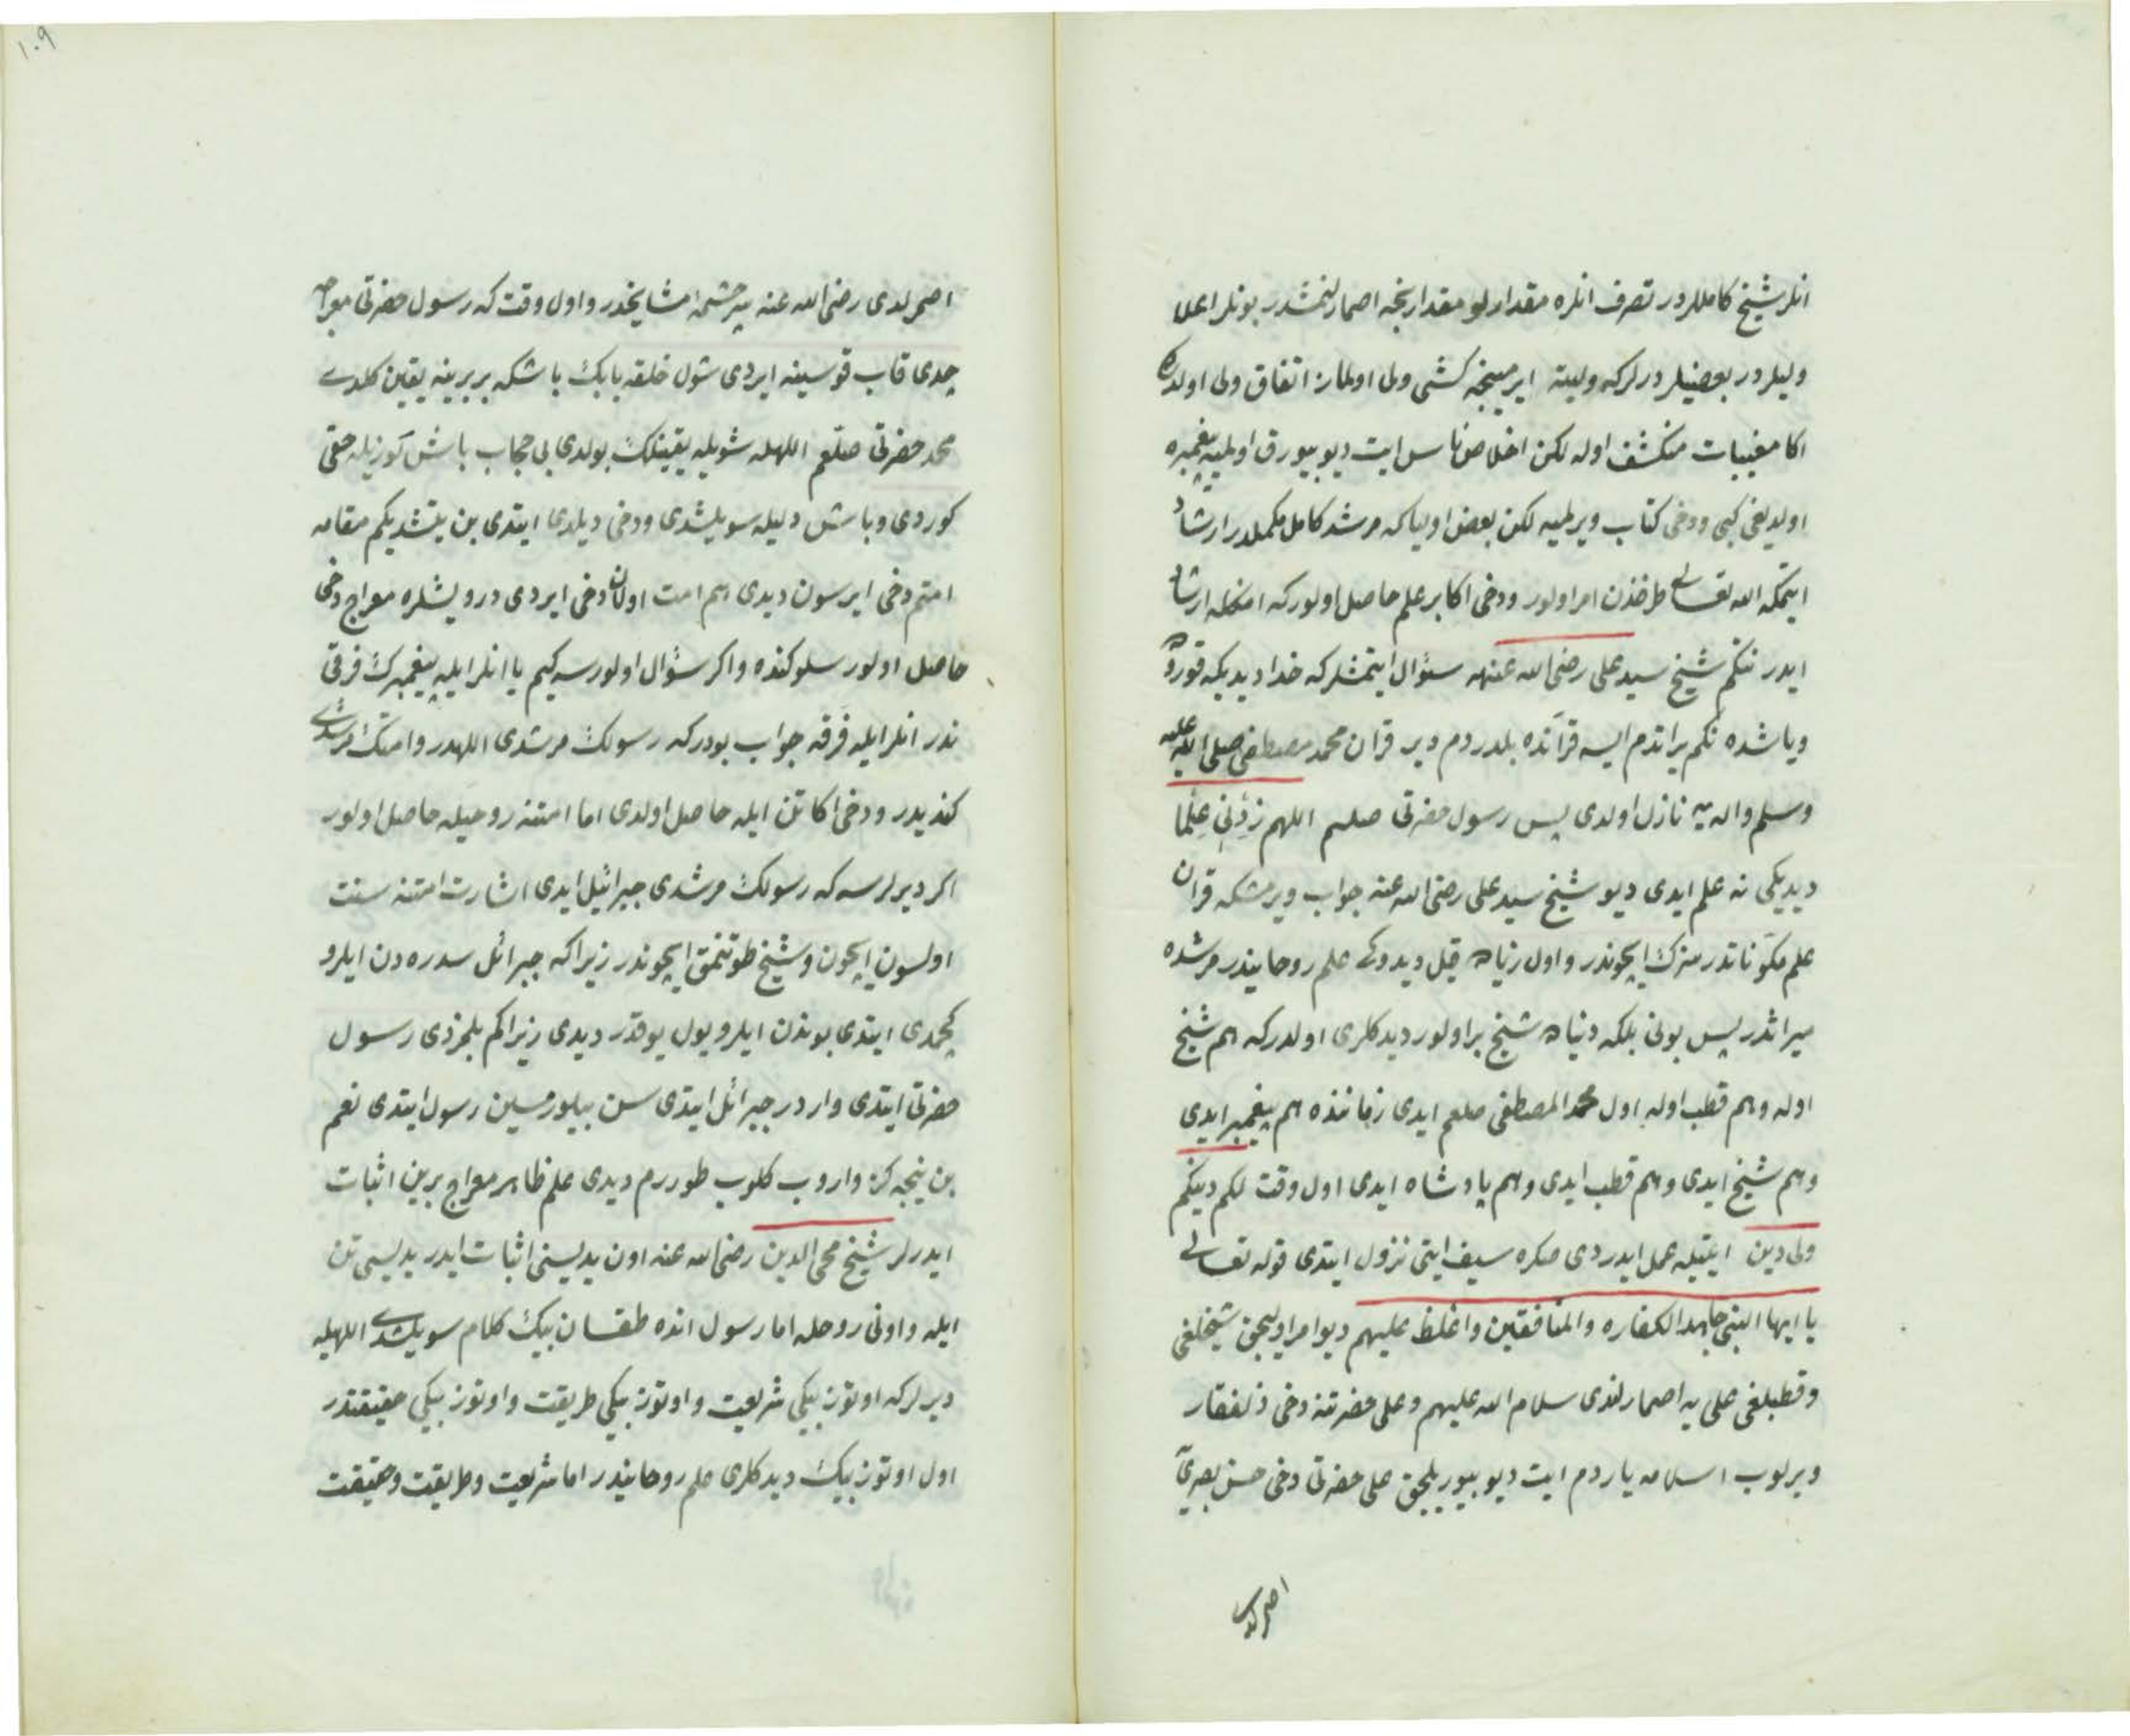 انلر شیخ کامللردر تصرف انلره مقدار اولو مقدارنجه اصمارلنمشدر بونلر اعلا
ولیلردر بعضیلر دیرلر که ولیته ایرمینجه کشی ولی اولماز اتفاق ولی اولدر که
اکا مغیبات منکشف اوله لکن اخلاص ناس ایت دیو بیورق اولمیه پیغمبره
اولدیغی کبی ودخی کتاب ویرلمیه لکن بعض اولیا که مرشد کامل مکملدر ارشاد
ایتمکه الله تعالی طرفندن امر اولور ودخی اکا بر علم حاصل اولور که انکله ارشاد
ایدر نتکم شیخ سید علی رضی الله عنهه سئوال ایتمشلر که خدا دیدیکه قوروده
ویاشده نکم یراتدم ایسه قرآنده بلدردم دیر قران محمد مصطفی صلی الله علیه
وسلم والدیه نازل اولدی پس رسول حضرتی صلعم اللهم زدنی علما
دیدیکی نه علم ایدی دیو شیخ سید علی رضی الله عنه جواب ویرمشکه قران
علم مکوناتدر منزک ایچوندر واول زیاده قیل دیدوکی علم روحانیدر مرشده
میراثدر پس بونی بلکه دنیاده شیخ بر اولور دیدکلری اولدر که هم شیخ
اوله وهم قطب اوله اول محمد المصطفی صلعم ایدی زماننده هم پیغمبر ایدی
وهم شیخ ایدی وهم قطب ایدی وهم پادشاه ایدی اول وقت لکم دینکم
ولی دین ایتیله عمل ایدردی صکره سیف ایتی نزول ایتدی قوله تعالی
یا ایها النبی جاهد الکفاره والمنافقین واغلظ علیهم دیو امر اولیجق شیخلغی
وقطبلغی علی یه اصمارلندی سلام الله علیهم وعلی حضرتنه دخی ذلفقار
ویرلوب اسلامه یاردم ایت دیو بیوریلجق علی حضرتی دخی حسن بصریه
اصمرلدی
۱۰۹
اصمرلدی رضی الله عنه سرچشمۀ مشایخدر واول وقت که رسول حضرتی معراجه
چقدی قاب قوسینه ایردی شول خلقه بابک باشکه بربرینه یقین کلدی
محمد حضرتی صلعم اللهله شویله یقینلک بولدی بی حجاب باش کوزیله حقی
کوردی وباش دلیله سویلشدی ودخی دیلدی ایتدی بن یتشدیکم مقامه
امتم دخی ایرسون دیدی هم امت اولان دخی ایردی درویشلره معراج دخی
حاصل اولور سلوکنده واکر سئوال اولورسه کیم یا انلر ایله پیغمبرک فرقی
ندر انلر ایله فرقه جواب بودر که رسولک مرشدی اللهدر وامتک مرشدی
کندیدر ودخی اکا تن ایله حاصل اولدی اما امتنه روحیله حاصل اولور
اکر دیرلرسه که رسولک مرشدی جبرائیل ایدی اشارت امتنه سنت
اولسون ایچون وشیخ طوتنمق ایچوندر زیرا که جبرائل سدره دن ایلرو
کچمدی ایتدی بوندن ایلرو یول یوقدر دیدی زیرا کم بلمزدی رسول
حضرتی ایتدی واردر جبرائل ایتدی سن بیلورمیسین رسول ایتدی نعم
بن نیجه کز واروب کلوب طوررم دیدی علم ظاهر معراج برین اثبات
ایدرلر شیخ محی الدین رضی الله عنه اون یدیسنی اثبات ایدر یدیسی تن
ایله واونی روحله اما رسول انده طقسان بیک کلام سویلشدی اللهیله
دیرلر که اوتوز بیکی شریعت واوتوز بیکی طریقت واوتوز بیکی حقیقتدر
اول اوتوز بیک دیدکلری علم روحانیدر اما شریعت وطریقت وحقیقت